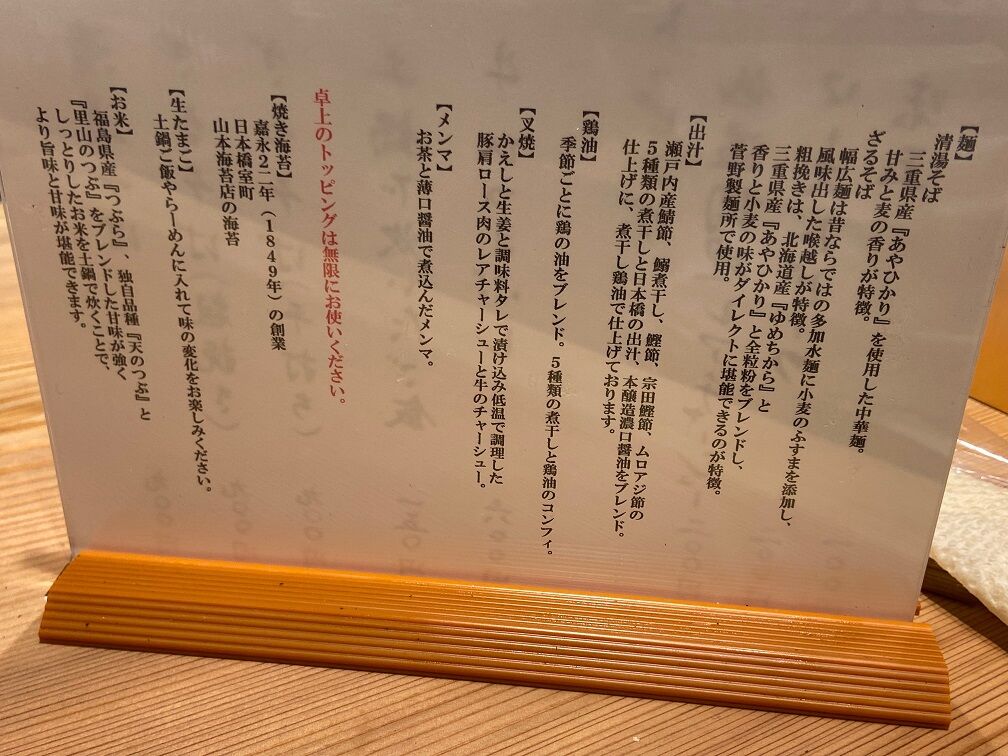 【麺】
清湯そば
三重県産『あやひかり』を使用した中華麺。
甘みと麦の香りが特徴。
ざるそば
幅広麺は昔ならではの多加水麺に小麦のふすまを添加し、
風味出した喉越しが特徴。
粗挽きは、北海道産『ゆめちから』と
三重県産『あやひかり』と全粒粉をブレンドし、
香りと小麦の味がダイレクトに堪能できるのが特徴。
菅野製麺所で使用。
【出汁】
瀬戸内産鯖節、鰯煮干し、鰹節、宗田鰹節、ムロアジ節の
5種類の煮干しと日本橋の出汁、本醸造濃口醤油をブレンド。
仕上げに、煮干し鶏油で仕上げております。
【鶏油】
季節ごとに鶏の油をブレンド。5種類の煮干しと鶏油のコンフィ。
【叉焼】
かえしと生姜と調味料タレで漬け込み低温で調理した
豚肩ロース肉のレアチャーシューと牛のチャーシュー。
【メンマ】
お茶と薄口醤油で煮込んだメンマ。
卓上のトッピングは無限にお使いください。
【焼き海苔】
嘉永二年（1849年）の創業
日本橋室町
山本海苔店の海苔
【生たまご】
土鍋ご飯やらーめんに入れて味の変化をお楽しみください。
【お米】
福島県産『つぶら』、独自品種『天のつぶ』と
『里山のつぶ』をブレンドした甘味が強く
しっとりしたお米を土鍋で炊くことで、
より旨味と甘味が堪能できます。